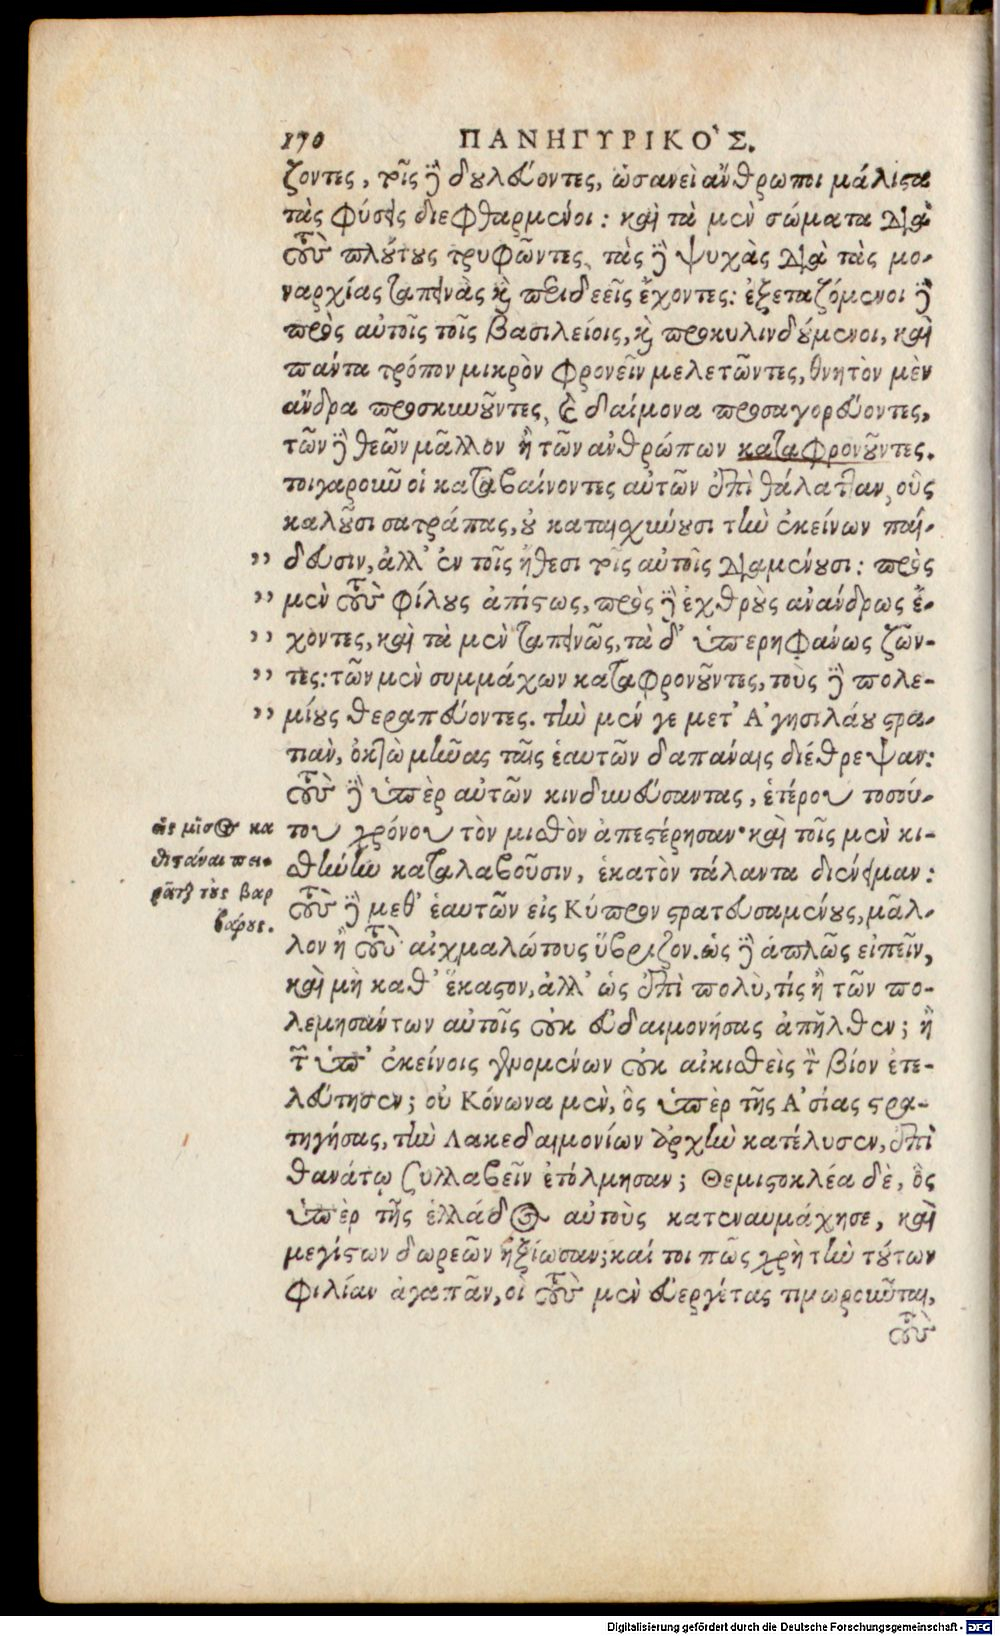 170 ΠΑΝΗΓΥΡΙΚΟ`Σ.
ζοντες, τοῖς δὲ δουλεύοντες, ὡσανεὶ ἄνθρωποι μάλιστα
τὰς φύσεις διεφθαρμένοι: καὶ τὰ μὲν σώματα διὰ
τοὺς πλούτους τρυφῶντες, τὰς δὲ ψυχὰς διὰ τὰς μο-
ναρχίας ταπεινὰς καὶ περιδεεῖς ἔχοντες: ἐξεταζόμενοι δὲ
πρὸς αὐτοῖς τοῖς βασιλείοις, καὶ προκυλινδούμενοι, καὶ
πάντα τρόπον μικρὸν φρονεῖν μελετῶντες, θνητὸν μὲν
ἄνδρα προσκυνοῦντες, καὶ δαίμονα προσαγορεύοντες,
τῶν δὲ θεῶν μᾶλλον ἢ τῶν ἀνθρώπων καταφρονοῦντες.
τοιγαροῦν οἱ καταβαίνοντες αὐτῶν ἐπὶ θάλατταν, οὓς
καλοῦσι σατράπας, οὐ καταισχύνουσι τὴν ἐκείνων παί-
„ δευσιν, ἀλλ' ἐν τοῖς ἤθεσι τοῖς αὐτοῖς διαμένουσι: πρὸς
„ μὲν τοὺς φίλους ἀπίστως, πρὸς δὲ ἐχθροὺς ἀνάνδρως ἔ-
„ χοντες, καὶ τὰ μὲν ταπεινῶς, τὰ δ' ὑπερηφάνως ζῶν-
„ τες: τῶν μὲν συμμάχων καταφρονοῦντες, τοὺς δὲ πολε-
„ μίους θεραπεύοντες. τὴν μέν γε μετ' Ἀγησιλάου στρα-
τιὰν, ὀκτὼ μῆνας ταῖς ἑαυτῶν δαπάναις διέθρεψαν:
τοὺς δὲ ὑπὲρ αὐτῶν κινδυνεύσαντας, ἑτέρου τοσού-
του χρόνου τὸν μισθὸν ἀπεστέρησαν· καὶ τοῖς μὲν κι-
σθήνην καταλαβοῦσιν, ἑκατὸν τάλαντα διένειμαν:
τοὺς δὲ μεθ' ἑαυτῶν εἰς Κύπρον στρατευσαμένους, μᾶλ-
λον ἢ τοὺς αἰχμαλώτους ὕβριζον. ὡς δὲ ἁπλῶς εἰπεῖν,
καὶ μὴ καθ' ἕκαστον, ἀλλ' ὡς ἐπὶ πολὺ, τίς ἢ τῶν πο-
λεμησάντων αὐτοῖς οὐκ εὐδαιμονήσας ἀπῆλθεν; ἢ
τῶν ὑπ' ἐκείνοις γενομένων οὐκ αἰκισθεὶς τὸν βίον ἐτε-
λεύτησεν; οὐ Κόνωνα μὲν, ὃς ὑπὲρ τῆς Ἀσίας στρα-
τηγήσας, τὴν Λακεδαιμονίων ἀρχὴν κατέλυσεν, ἐπὶ
θανάτῳ συλλαβεῖν ἐτόλμησαν; Θεμιστοκλέα δὲ, ὃς
ὑπὲρ τῆς ἑλλάδος αὐτοὺς κατεναυμάχησε, καὶ
μεγίστων δωρεῶν ἠξίωσαν; καί τοι πῶς χρὴ τὴν τούτων
φιλίαν ἀγαπᾶν, οἳ τοὺς μὲν εὐεργέτας τιμωροῦνται,
τοὺς
εἰς μῖσος κα
θιστάναι πει-
ρᾶται τοὺς βαρ
βάρους.
Digitalisierung gefördert durch die Deutsche Forschungsgemeinschaft - DFG